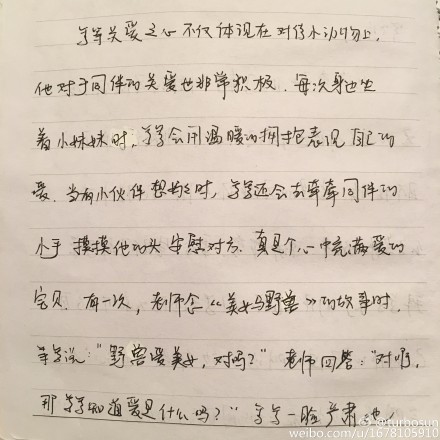 等等关爱之心不仅体现在对待小动物上,
他对于同伴的关爱也非常积极. 每次身边坐
着小妹妹时, 等等会用温暖的拥抱表现自己的
爱. 当有小伙伴想妈妈时, 等等还会去牵牵同伴的
小手 摸摸他的头 安慰对方. 真是个心中充满爱的
宝贝. 有一次, 老师在《美女与野兽》的故事时,
等等说: "野兽爱美女, 对吗?" 老师回答: "对啊,
那等等知道爱是什么吗?" 等等一脸严肃地
@turbosun
weibo.com/u/1678105910